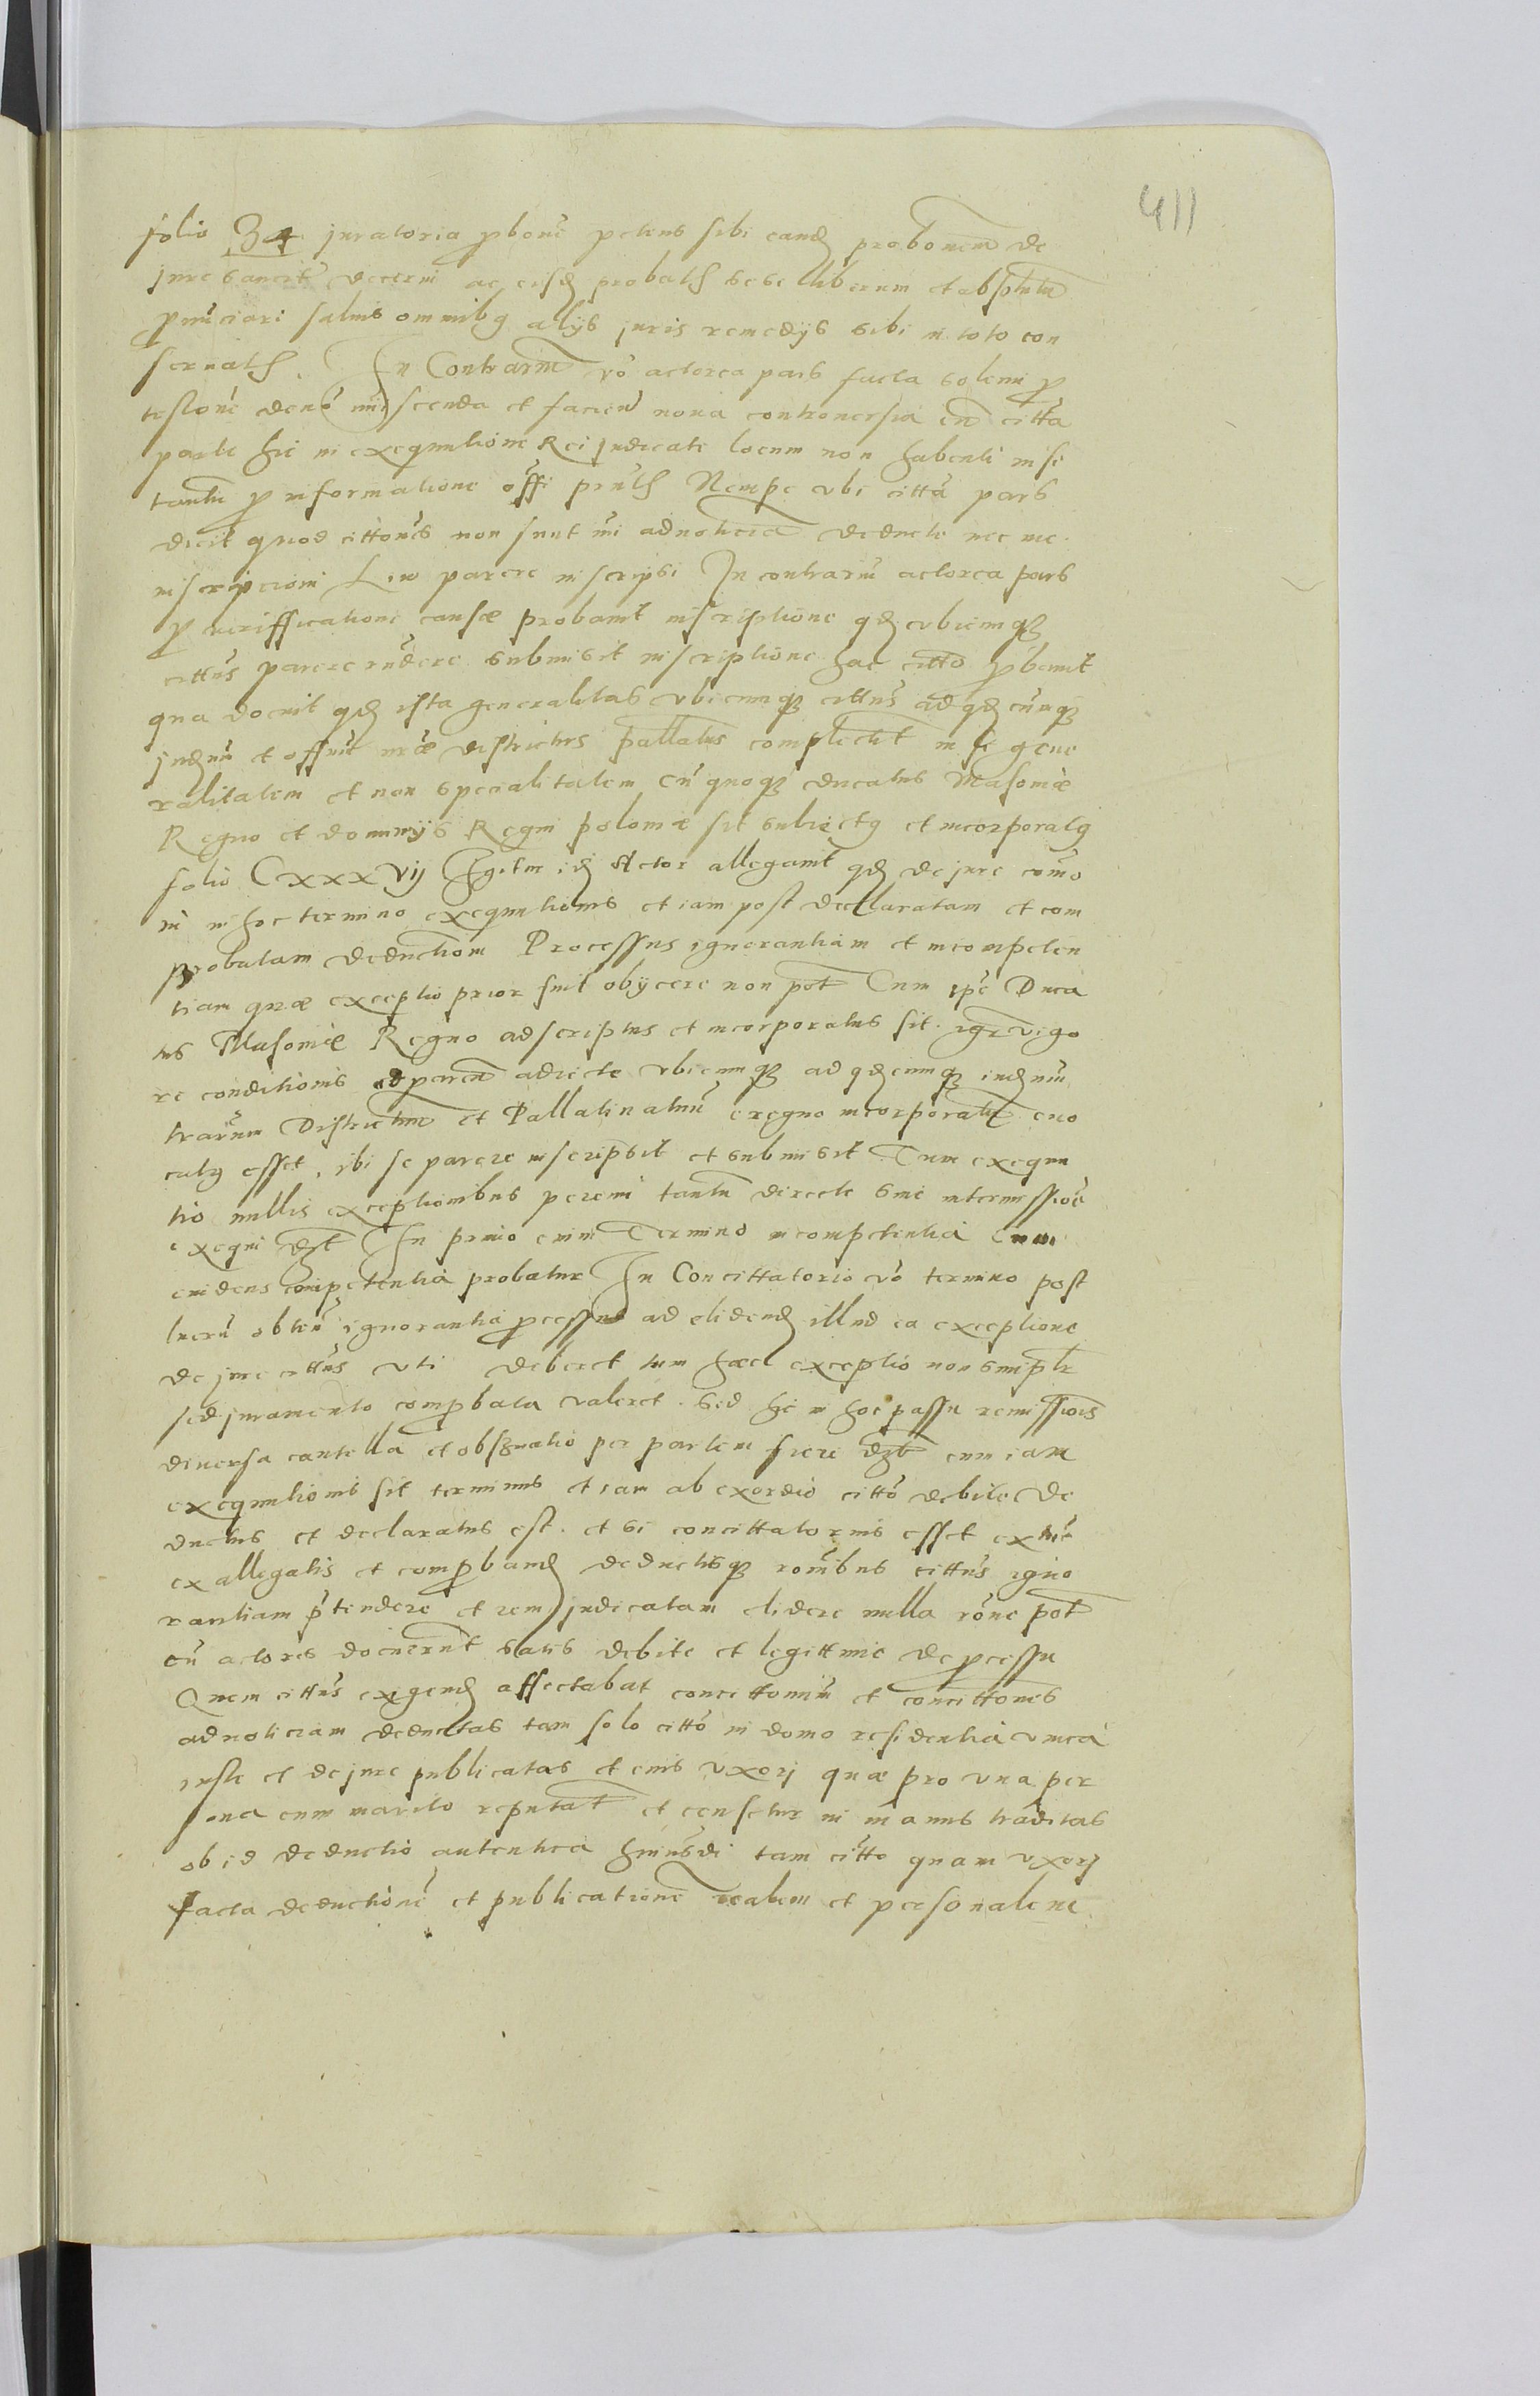 411
folio 34 juratoria ꝓbone petens sibi eand probonem de
jure sancit decerni ac eisd probatis sese liberum et absolutu
ꝓnuciari saluis omnibq alijs juris remedijs sibi in toto con
seruatis. In Contrarm vo actorea pars facta solenni ꝓ
testone de no miscenda et facien noua controuersia cu citta
parte hic in exequutione Rei judicate locum non habenti in se
tantu ꝓ informatione offi pntis Nempe vbi citta pars
dicit quod cittones non sunt mi ad noticia deducte nec me
inscripcioni parere inscripsi In contrariu actorea pars
ꝓ veriffications causæ probauit inscriptione qd vbicumqꝫ
cittus parere rndere submisit inscriptione hac citto ꝓbauit
qua docuit qd ista generalitas vbicumqꝫ cittus ad qd cunqꝫ
judm et offm districtus pallatus complectit in se gene
ralitatem et non specialitatem cu quoqꝫ ducatus Masouiæ
Regno et dominijs Regni poloniæ sit subiectq et incorporatq
folio CxxxVij Igitur id Actor allegauit qd de jure como
in hoc termino exequutionis et iam post declaratam et com
probatam deductiom Processus ignorantiam et incompeten
tiam quæ exceptio prior fuit obijcere non pot Cum ipe Duca
tus Masouiæ Regno adscriptus et incorporatus sit. igr vigo
re conditionis adicte vbicumqꝫ ad qdcumqꝫ judm
Districtum et Pallatinatuu regno incorporatu euo
catq esset, ibi se parere inscripsit et submisit Tum exequu
tio nullis exceptionibus tantu directe sine intermissioe
exequi dbt In primo enim Termino incompetentia
euidens competentia probatur In Concittatorio vo termino post
lucru obten ignorantia ꝓcessus ad elidend illud ea exceptione
de jure cittus vti deberet tum hæc exceptio non simplr
sed juramento comꝓbata valeret. Sed hic in hoc passu remissiois
diuersa cautella et obseruatio per partem fieri dbt cum iam
exequutionis sit terminus et iam ab exordio citto debite de
ductus et declaratus est. et si concittatorius esset
ex allegatis et comꝓband deductisqꝫ ronibus cittus igno
rantiam ptendere et rem judicatam elidere nulla rone pot
cu actores docuerut satis debite et legittime de ꝓcessu
Quem cittus exigend affectabat concittonum et concittones
ad noticiam deductas tam solo citto in domo residentia
iuste et de jure publicatas et eius vxorj quæ pro vna per
sona cum marito reputat et censetur in manus traditas
ob id deductio autentica huiusdi tam citto quam vxorj
facta deductione et publicatione realem et personalem